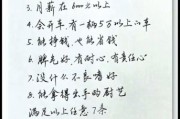 3. 月薪在6000元以上
4. 会开车有一辆5万以上的车
5. 能挣钱,也能省钱
6. 脾气好,有耐心,有责任心
7. 没什么不良嗜好
8. 能拿得出手的厨艺
满足以上任意7条